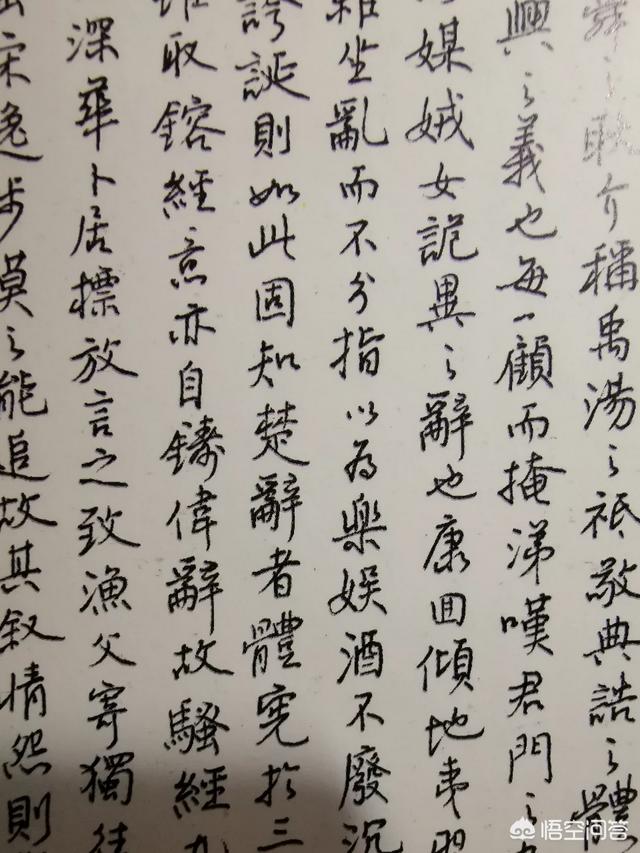 舜之耿介稱禹湯之祗敬典誥之體
興之義也每一顧而掩涕嘆君門之
媒娀女詭異之辭也康回傾地夷羿
雜坐亂而不分指以為樂娛酒不廢沉
誇誕則如此固知楚辭者體憲於三
取鎔經意亦自鑄偉辭故騷經九
深華卜居標放言之致漁父寄獨往
宋逸步莫之能追故其叙情怨則
悟空问答